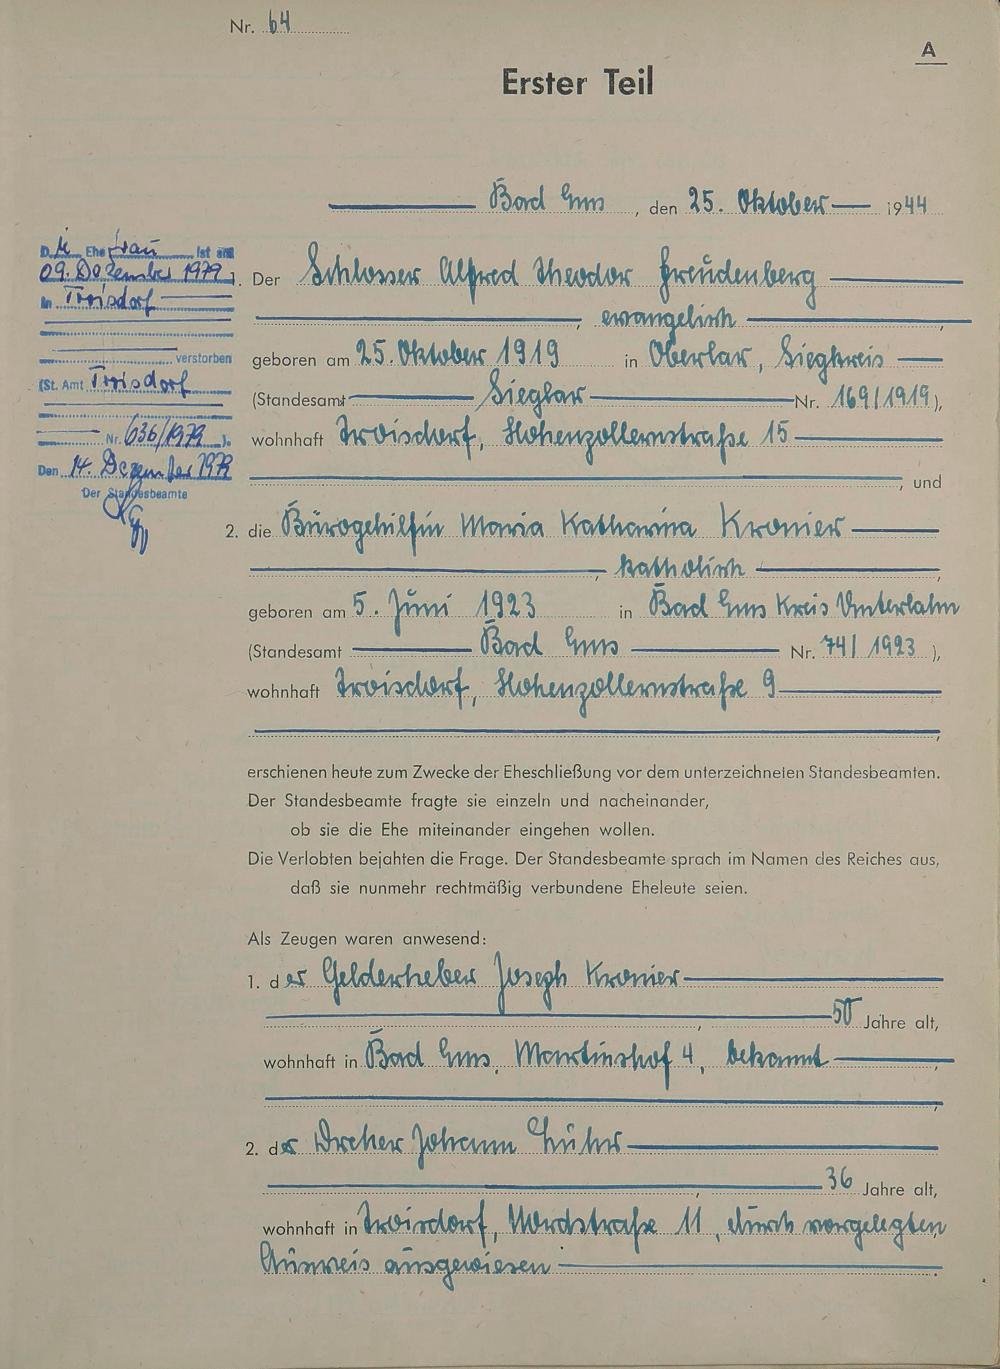 Nr. 64
A
Erster Teil
Bad Ems, den 25. Oktober 1944
Die Ehefrau ist am
09. Dezember 1979
in Troisdorf
verstorben
(St. Amt Troisdorf
Nr. 636/1979).
Den 14. Dezember 1979
Der Standesbeamte
1. Der Schlosser Alfred Theodor Freudenberg
evangelisch,
geboren am 25. Oktober 1919 in Oberlar, Siegkreis
(Standesamt Sieglar Nr. 169/1919),
wohnhaft Troisdorf, Hohenzollernstraße 15
, und
2. die Bürogehilfin Maria Katharina Kronier
, katholisch,
geboren am 5. Juni 1923 in Bad Ems Kreis Unterlahn
(Standesamt Bad Ems Nr. 74/1923),
wohnhaft Troisdorf, Hohenzollernstraße 9
,
erschienen heute zum Zwecke der Eheschließung vor dem unterzeichneten Standesbeamten.
Der Standesbeamte fragte sie einzeln und nacheinander,
ob sie die Ehe miteinander eingehen wollen.
Die Verlobten bejahten die Frage. Der Standesbeamte sprach im Namen des Reiches aus,
daß sie nunmehr rechtmäßig verbundene Eheleute seien.
Als Zeugen waren anwesend:
1. der Gelderheber Joseph Kronier
, 50 Jahre alt,
wohnhaft in Bad Ems, Martinshof 4, bekannt
,
2. der Dreher Johann
, 36 Jahre alt,
wohnhaft in Troisdorf, Nordstraße 11, durch vorgelegten
Ausweis ausgewiesen.